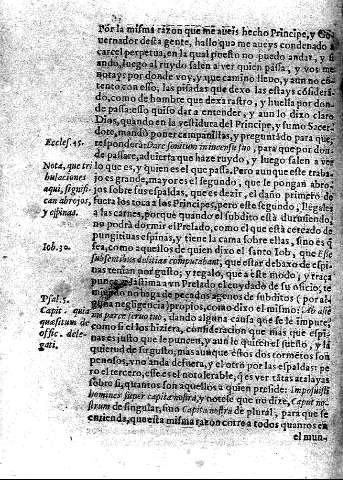 Por la misma razon que me aueis hecho Principe, y Go
uernador desta gente, hallo que me aueys condenado a
carcel perpetua, en la qual puesto no puedo andar, y si
ando, luego al ruydo salen a ver quien passa, y vos me
notays por donde voy, y que camino lleuo, y aun no cõ
tento con esso, las pisadas que dexo las estays cõsiderã-
do, como de hombre que dexa rastro, y huella por don-
de passa: esso quiso dar a entender, y aun lo dixo claro
Dios, quando en la vestidura del Principe, y sumo Sacer-
dote, mandò poner campanillas, y preguntado para que,
respondera: Dare sonitum in incensu suo, para que por don-
de passare, aduierta que haze ruydo, y luego salen a ver
lo que es, y quien es el que passa. Pero aunque este traba-
jo es grande, mayor es el segundo, que le pongan abro-
jos sobre sus espaldas, que es dezir, el daño primero de
fuera los toca a los Principes, pero este segundo, llegales
a las carnes, porque quando el subdito està durmiendo,
no podrà dormir el Prelado, como el que està cercado de
pungitiuas espinas, y tiene la cama sobre ellas, sino es q̃
sea, como aquellos de quien dixo el santo Iob, que Esse
sub sentibus delicias computabant, que estar debaxo de espi-
nas tenian por gusto, y regalo, què a este modo, y traça
punça a un Prelado el cuydado de su oficio, te
no no haga de pecados agenos de subditos (por al-
guna negligencia) propios, como dixo el mismo:
dando alguna causa que se le impute,
como si el los hiziera, consideracion que mas que espi-
nas es justo que le puncen, y aun lo quiten el sueño, y la
quietud de su gusto; mas aunque estos dos tormẽtos son
penosos, vno anda de fuera, y el otro por las espaldas: pe
ro el tercero, este es el notolerable, q̃ es ver tãtas atalayas
sobre si, quantos son aquellos a quien preside: Imposuisti
homines super capita nostra, y notese que no dize, Caput no-
strum de singular, sino Capita nostra de plural, para que se
entienda, que esta misma razon corre a todos quantos en
el mun-
Ecclef. 45.
Nota, que tri
bulaciones
aqui, signifi-
can abrojos,
y espinas.
Iob. 30.
Psal. 5.
Capit. quia
quæsitum de
offic. dele-
gati.